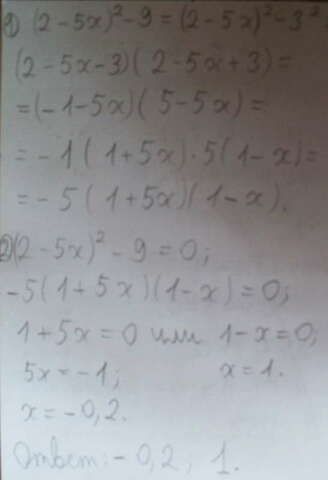 1) (2-5x)²-9=(2-5x)²-3²
(2-5x-3)(2-5x+3)=
=(-1-5x)(5-5x)=
=-1(1+5x)·5(1-x)=
=-5(1+5x)(1-x).
2)(2-5x)²-9=0;
-5(1+5x)(1-x)=0;
1+5x=0 или 1-x=0;
5x=-1; x=1.
x=-0,2.
Ответ:-0,2; 1.